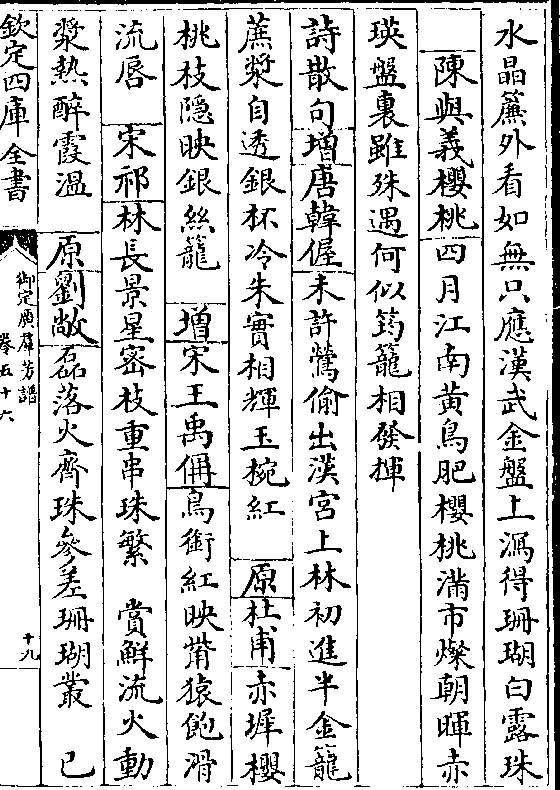 水晶簾外看如無只應漢武金盤上瀉得珊瑚白露珠
陳與義櫻桃四月江南黃鳥肥櫻桃滿市燦朝暉赤
瑛盤裏雖殊遇何似筠籠相發揮
詩散句增唐韓偓未許鶯偷出漢宫上林初進半金籠
蔗漿自透銀杯冷朱實相輝玉椀紅　原杜甫赤墀櫻
桃枝隱映銀絲籠　增宋王禹偁鳥銜紅映觜猿飽滑
流唇　宋祁林長景星密枝重串珠繁　賞鮮流火動
漿熱醉霞溫　原劉敞磊落火齊珠參差珊瑚叢　已
欽定四庫全書
御定廣羣芳譜
卷五十六
十九